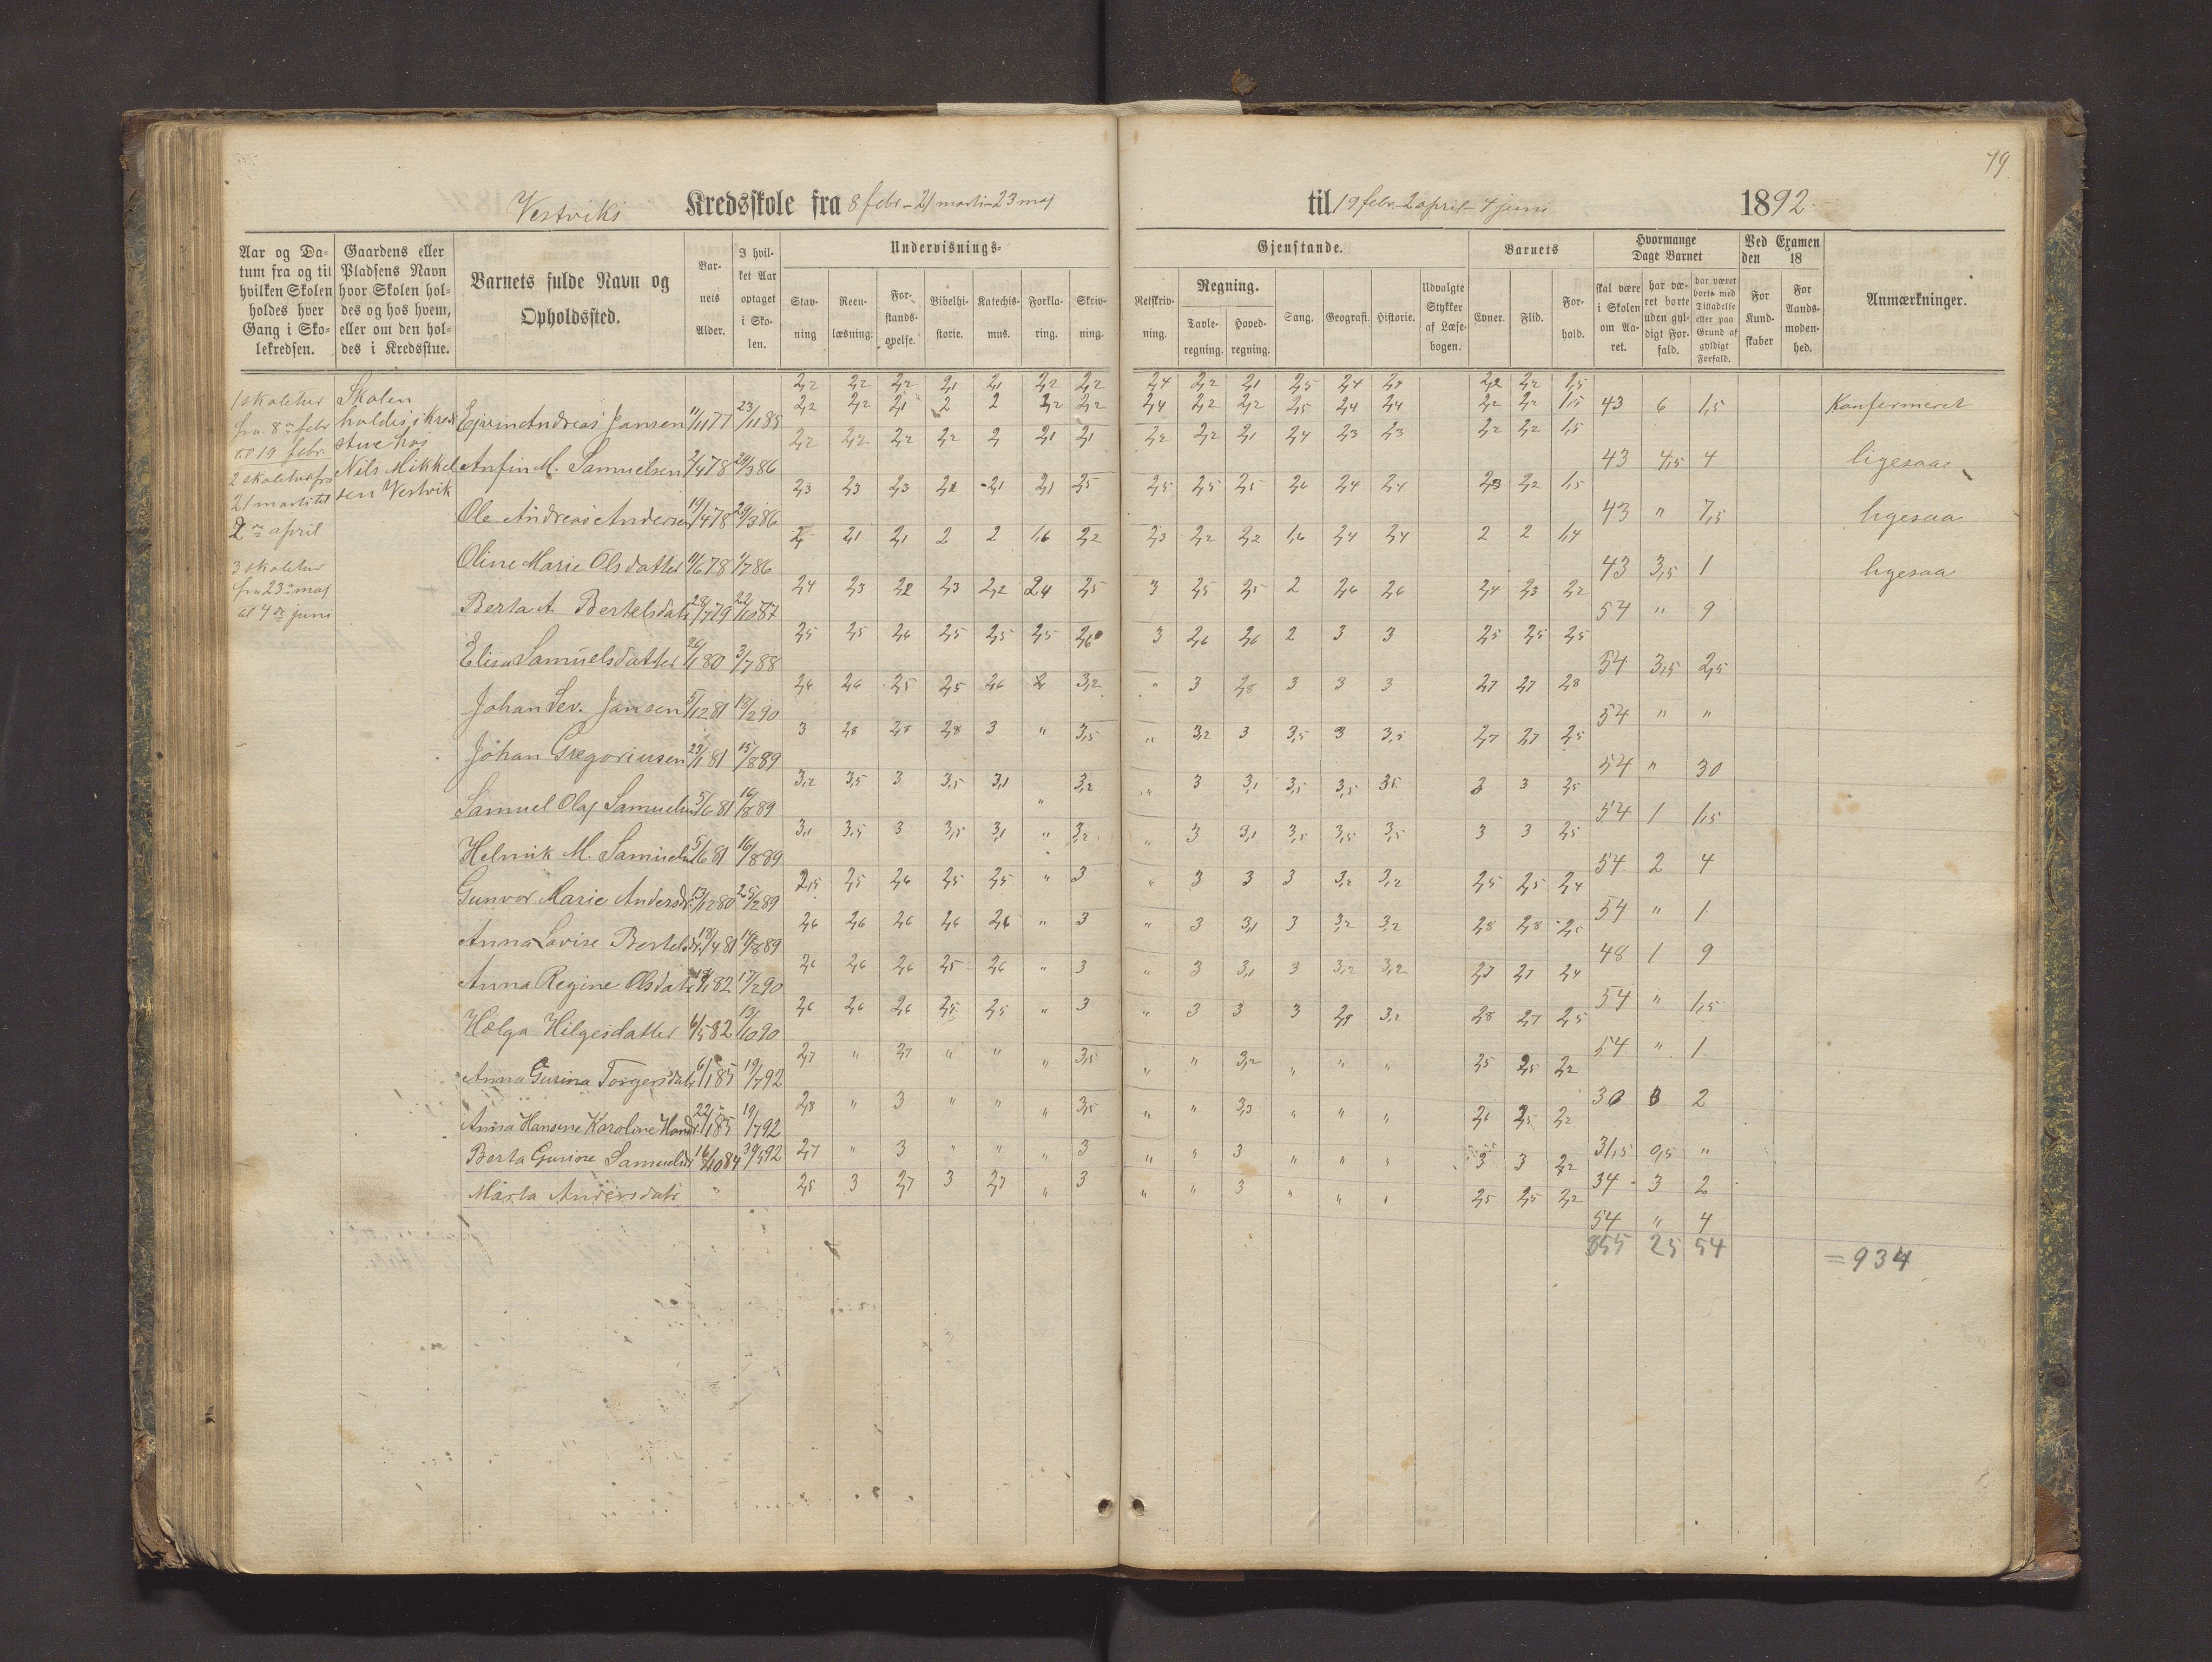 79
Vestviks Kredsskole fra 8 febr - 21 marts - 23 maj til 19 febr - 2 april - 4 juni 1892
Aar og Datum fra og til hvilken Skolen holdes hver Gang i Skolekredsen.
Gaardens eller Pladsens Navn hvor Skolen holdes og hos hvem, eller om den holdes i Kredsstue.
Barnets fulde Navn og Opholdssted.
Barnets Alder.
I hvilket Aar optaget i Skolen.
Undervisnings- Gjenstande.
Stavning
Reenlæsning.
Forstandsøvelse.
Bibelhistorie.
Katechismus.
Forklaring.
Skrivning.
Retskrivning.
Regning.
Tavleregning.
Hovedregning.
Sang.
Geografi.
Historie.
Udvalgte Stykker af Læsebogen.
Barnets
Evner.
Flid.
Forhold.
Hvormange Dage Barnet
skal være i Skolen om Aaret.
har været borte uden gyldigt Forfald.
har været borte med Tilladelse eller paa Grund af gyldigt Forfald.
Ved Examen den 18
For Kundskaber
For Aandsmodenhed.
Anmærkninger.
1 skoletur
fra 8de febr
til 19 febr.
2 skoletur fra
21 marts til
2den april
3 skoletur
fra 23de maj
til 4de juni
Skolen
holdes i Kreds
stue hos
Nils Mikkel
sen Vestvik
2,2 2,2 2,2 2,1 2,1 2,2 2,2 2,4 2,2 2,1 2,5 2,4 2,2 2,2 1,5
Ejvin Andreas Jansen 11/11 77 23/11 85 2,2 2,2 2,1 2 2 2,2 2,2 2,4 2,2 2,2 2,5 2,4 2,4 2,2 2,2 1,5 43 6 1,5 Konfermeret
Anfin M. Samuelsen 2/4 78 29/3 86 2,2 2,2 2,2 2,2 2 2,1 2,1 2,2 2,2 2,1 2,4 2,3 2,3 2,2 2,2 1,5 43 4,5 4 ligesaa
Ole Andreas Andersen 19/4 78 29/3 86 2,3 2,3 2,3 2,2 2,1 2,1 2,5 2,5 2,5 2,5 2,6 2,4 2,4 2,3 2,2 1,5 43 " 7,5 ligesaa
Oline Marie Olsdatter 11/6 78 1/7 86 2 2,1 2,1 2 2 1,6 2,2 2,3 2,2 2,2 1,6 2,4 2,4 2 2 1,4 43 3,5 1 ligesaa
Berta A. Bertelsdatr 28/7 79 22/10 87 2,4 2,3 2,2 2,3 2,2 2,4 2,5 3 2,5 2,5 2 2,6 2,6 2,4 2,3 2,2 54 " 9
Elisa Samuelsdatter 26/1 80 3/7 88 2,5 2,5 2,6 2,5 2,5 2,5 2,6 3 2,6 2,6 2 3 3 2,5 2,5 2,5 54 3,5 2,5
Johan Sev. Jansen 5/12 81 13/2 90 2,6 2,6 2,5 2,5 2,6 3,2 " 3 2,8 3 3 3 2,7 2,7 2,8 54 " "
Johan Gregoriusen 29/1 81 15/8 89 3 2,8 2,8 2,8 3 " 3,5 " 3,2 3 3,5 3 3,5 2,7 2,7 2,5 54 " 30
Samuel Olaj Samuelsen 5/6 81 16/8 89 3,2 3,5 3 3,5 3,1 " 3,2 " 3 3,1 3,5 3,5 3,5 3 3 2,5 54 1 1,5
Helmik M. Samuelsn 5/6 81 16/8 89 3,1 3,5 3 3,5 3,1 " 3,2 " 3 3,1 3,5 3,5 3,5 3 3 2,5 54 2 4
Gunvor Marie Andersdr. 13/12 80 25/2 89 2,5 2,5 2,6 2,5 2,5 " 3 " 3 3 3 3,2 3,2 2,5 2,5 2,4 54 " 1
Anna Lovise Bertelsdr. 18/4 81 14/8 89 2,6 2,6 2,6 2,6 2,6 " 3 " 3 3,1 3 3,2 3,2 2,8 2,8 2,5 48 1 9
Anna Regine Olsdatr 82 17/2 90 2,6 2,6 2,6 2,5 2,6 " 3 " 3 3,1 3 3,2 3,2 2,7 2,7 2,4 54 " 1,5
Hælga Hilgesdatter 4/5 82 13/10 90 2,6 2,6 2,6 2,5 2,5 " 3 " 3 3 3 2,9 3,2 2,8 2,7 2,5 54 " 1
Anna Gurina Torgersdatr 6/1 85 19/7 92 2,7 " 2,7 " " " 3,5 " " 3,2 " " " 2,5 2,5 2,2 30 2
Anna Hansine Karoline Hansdr. 22/1 85 19/7 92 2,8 " 3 " " " 3,5 " " 3,3 " " " 2,6 2,5 2,2 31,5 0,5 "
Berta Gurine Samuelsdr 16/10 84 30/5 92 2,7 " 3 " " " 3 " " 3 " " " 3 3 2,2 34 3 2
Marta Andersdatr " 2,5 3 2,7 3 2,7 " 3 " " 3 " " " 2,5 2,5 2,2 54 " 4
855 25 54 = 934